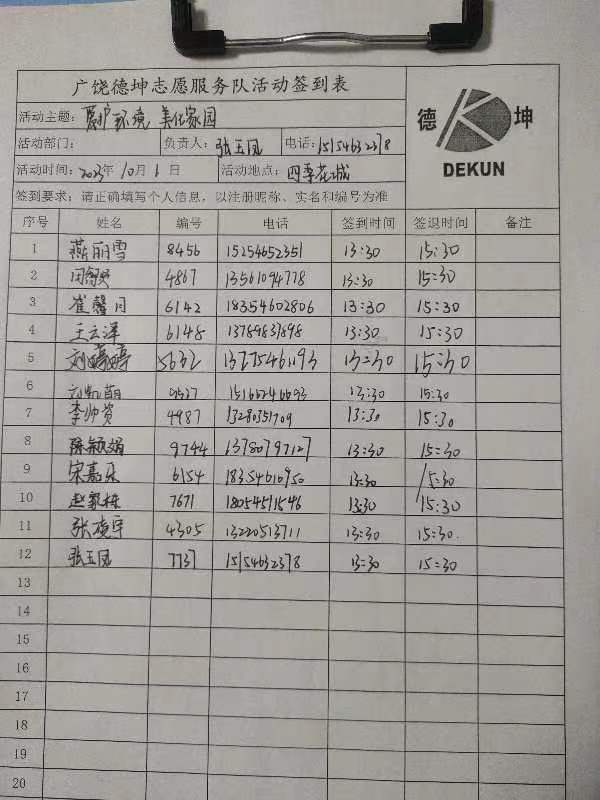 广饶德坤志愿服务队活动签到表
活动主题：爱护环境 美化家园
活动部门： 负责人：张玉凤 电话：15154632378
活动时间：2023年10月1日 活动地点：四季花城
签到要求：请正确填写个人信息，以注册昵称、实名和编号为准
德 坤
DEKUN
序号 姓名 编号 电话 签到时间 签退时间 备注
1 燕丽雪 8456 15254652351 13:30 15:30
2 4867 13561094778 13:30 15:30
3 崔馨月 6142 18354602806 13:30 15:30
4 王云泽 6148 13789837898 13:30 15:30
5 5632 13275461193 13:30 15:30
6 刘凯萌 13:30 15:30
7 李帅贤 4987 13280351709 13:30 15:30
8 陈颖娟 9744 13780797127 13:30 15:30
9 宋嘉朵 6154 18354610950 13:30 15:30
10 赵家栋 7671 18054591546 13:30 15:30
11 4305 13220513711 13:30 15:30
12 张玉凤 7737 15154632378 13:30 15:30
13
14
15
16
17
18
19
20